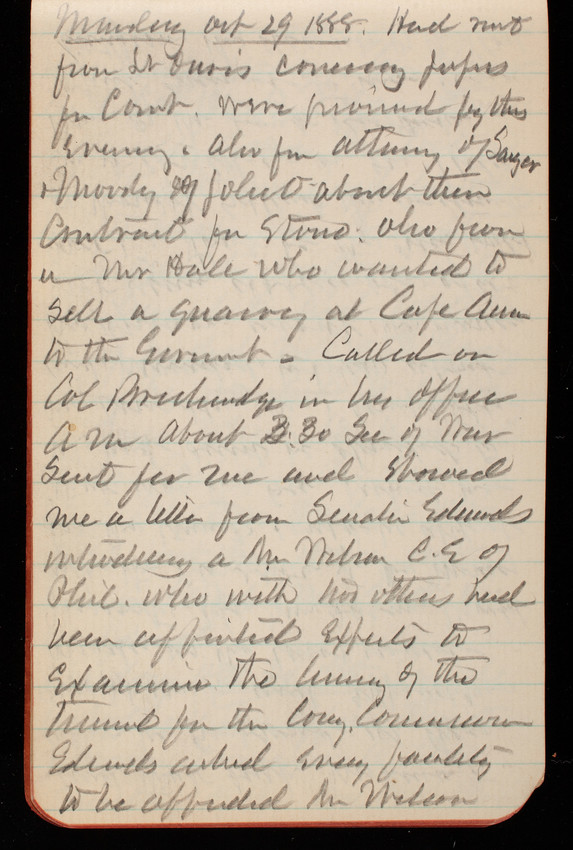 Monday Oct 29 1888. Had
from Lt Davis concerning papers
for Court. were promised for this
Evening. also from attorney of Sanger
& Moody of Joliet about their
Contract for Stone. also from
a Mr Hale who wanted to
sell a quarry at Cape Ann
to the Government. Called on
Col in his office
a m About 3.30 Sec of War
Sent for me and showed
me a letter from Senator Edmunds
introducing a Mr Wilson C.E of
Phil. who with two others had
been appointed Experts to
Examine the lining of the
tunnel for the Cong. Commission
Edmunds asked every facility
to be afforded Mr Wilson